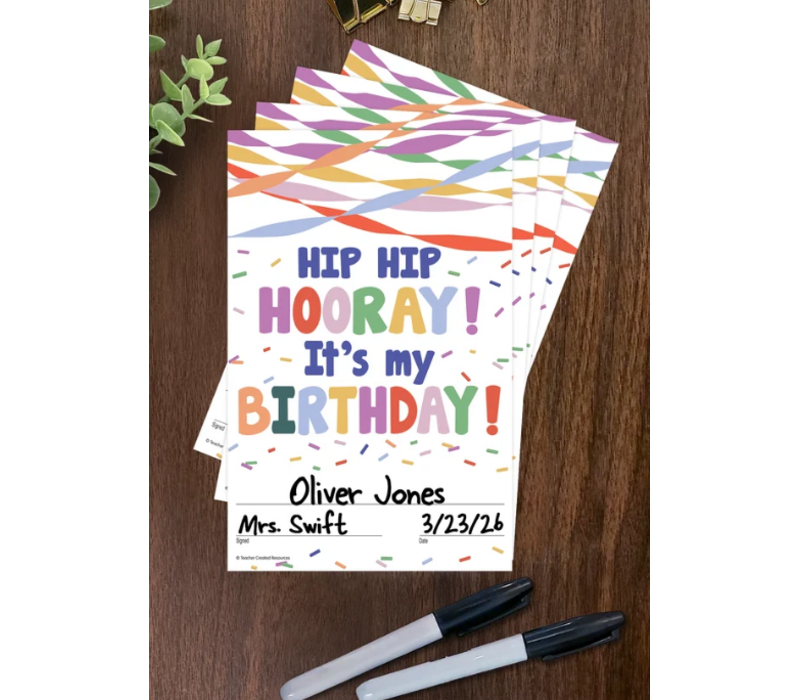 HIP HIP
HOORAY!
It's my
BIRTHDAY!
Oliver Jones
Mrs. Swift 3/23/26
Signed Date
© Teacher Created Resources
Signed
© Teacher